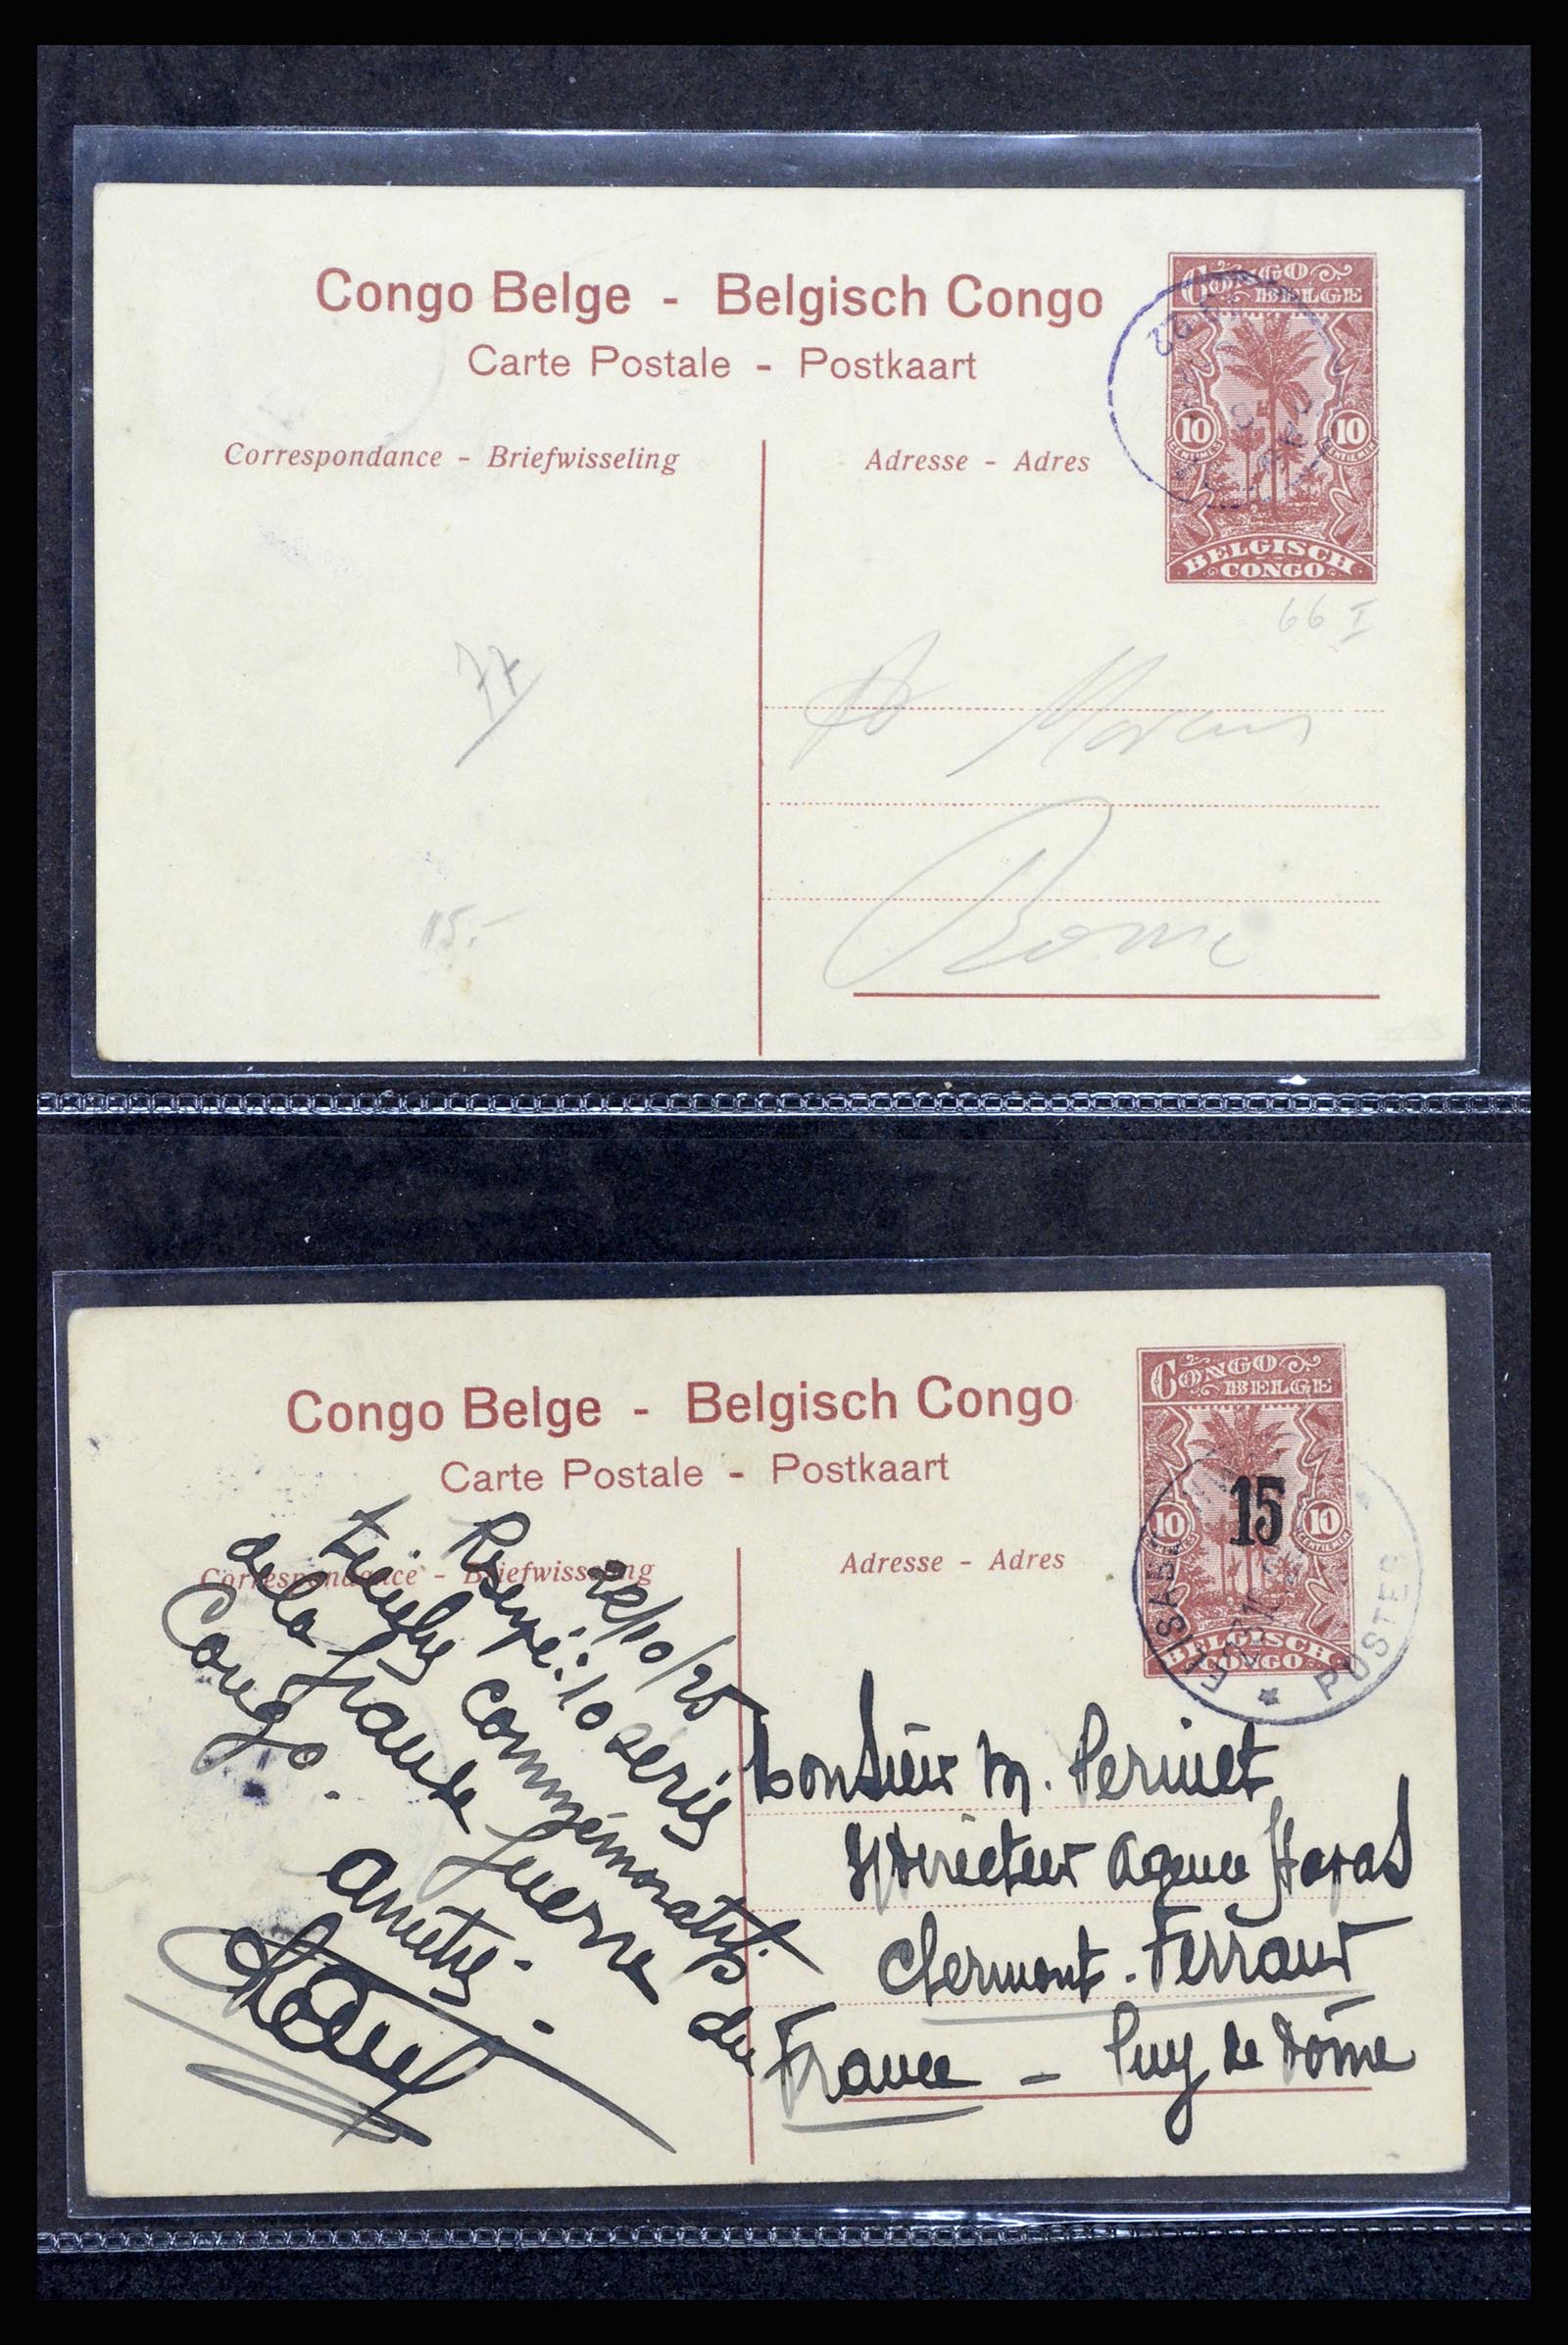 Congo Belge - Belgisch Congo
Carte Postale - Postkaart
Correspondance - Briefwisseling
Adresse - Adres
CONGO
BELGE
22
10 10
BELGISCH
CONGO
66 I
77
15.-
Congo Belge - Belgisch Congo
Carte Postale - Postkaart
Correspondance - Briefwisseling
Adresse - Adres
CONGO
BELGE
15
10 10
BELGISCH
CONGO
ELISAB
POSTES
22/10/25
10 series
timbres commémoratifs
de la grande guerre du
Congo.
amitiés.
Monsieur M. Perinet
Directeur Agence Havas
Clermont-Ferrand
France - Puy de Dôme